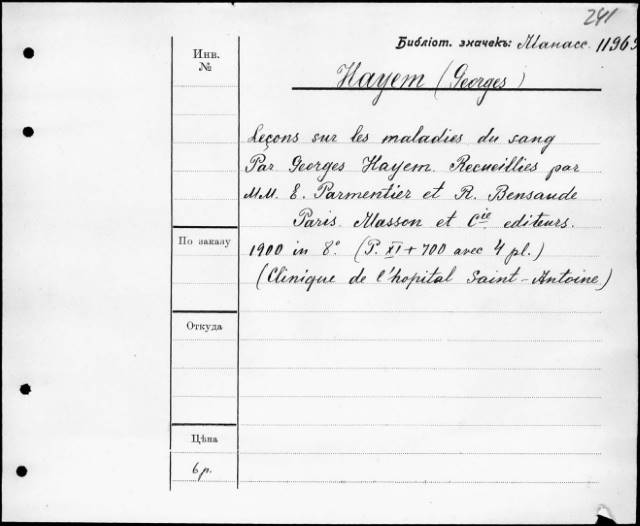 241
Библiот. значекъ: Манасс. 1196
Инв.
№
Hayem (Georges)
Leçons sur les maladies du sang
Par Georges Hayem. Recueillies par
MM. E. Parmentier et R. Bensaude
Paris. Masson et Cie editeurs.
По заказу
1900 in 8° (P. XI + 700 avec 4 pl.)
(Clinique de l'hopital Saint-Antoine)
Откуда
Цѣна
6 р.